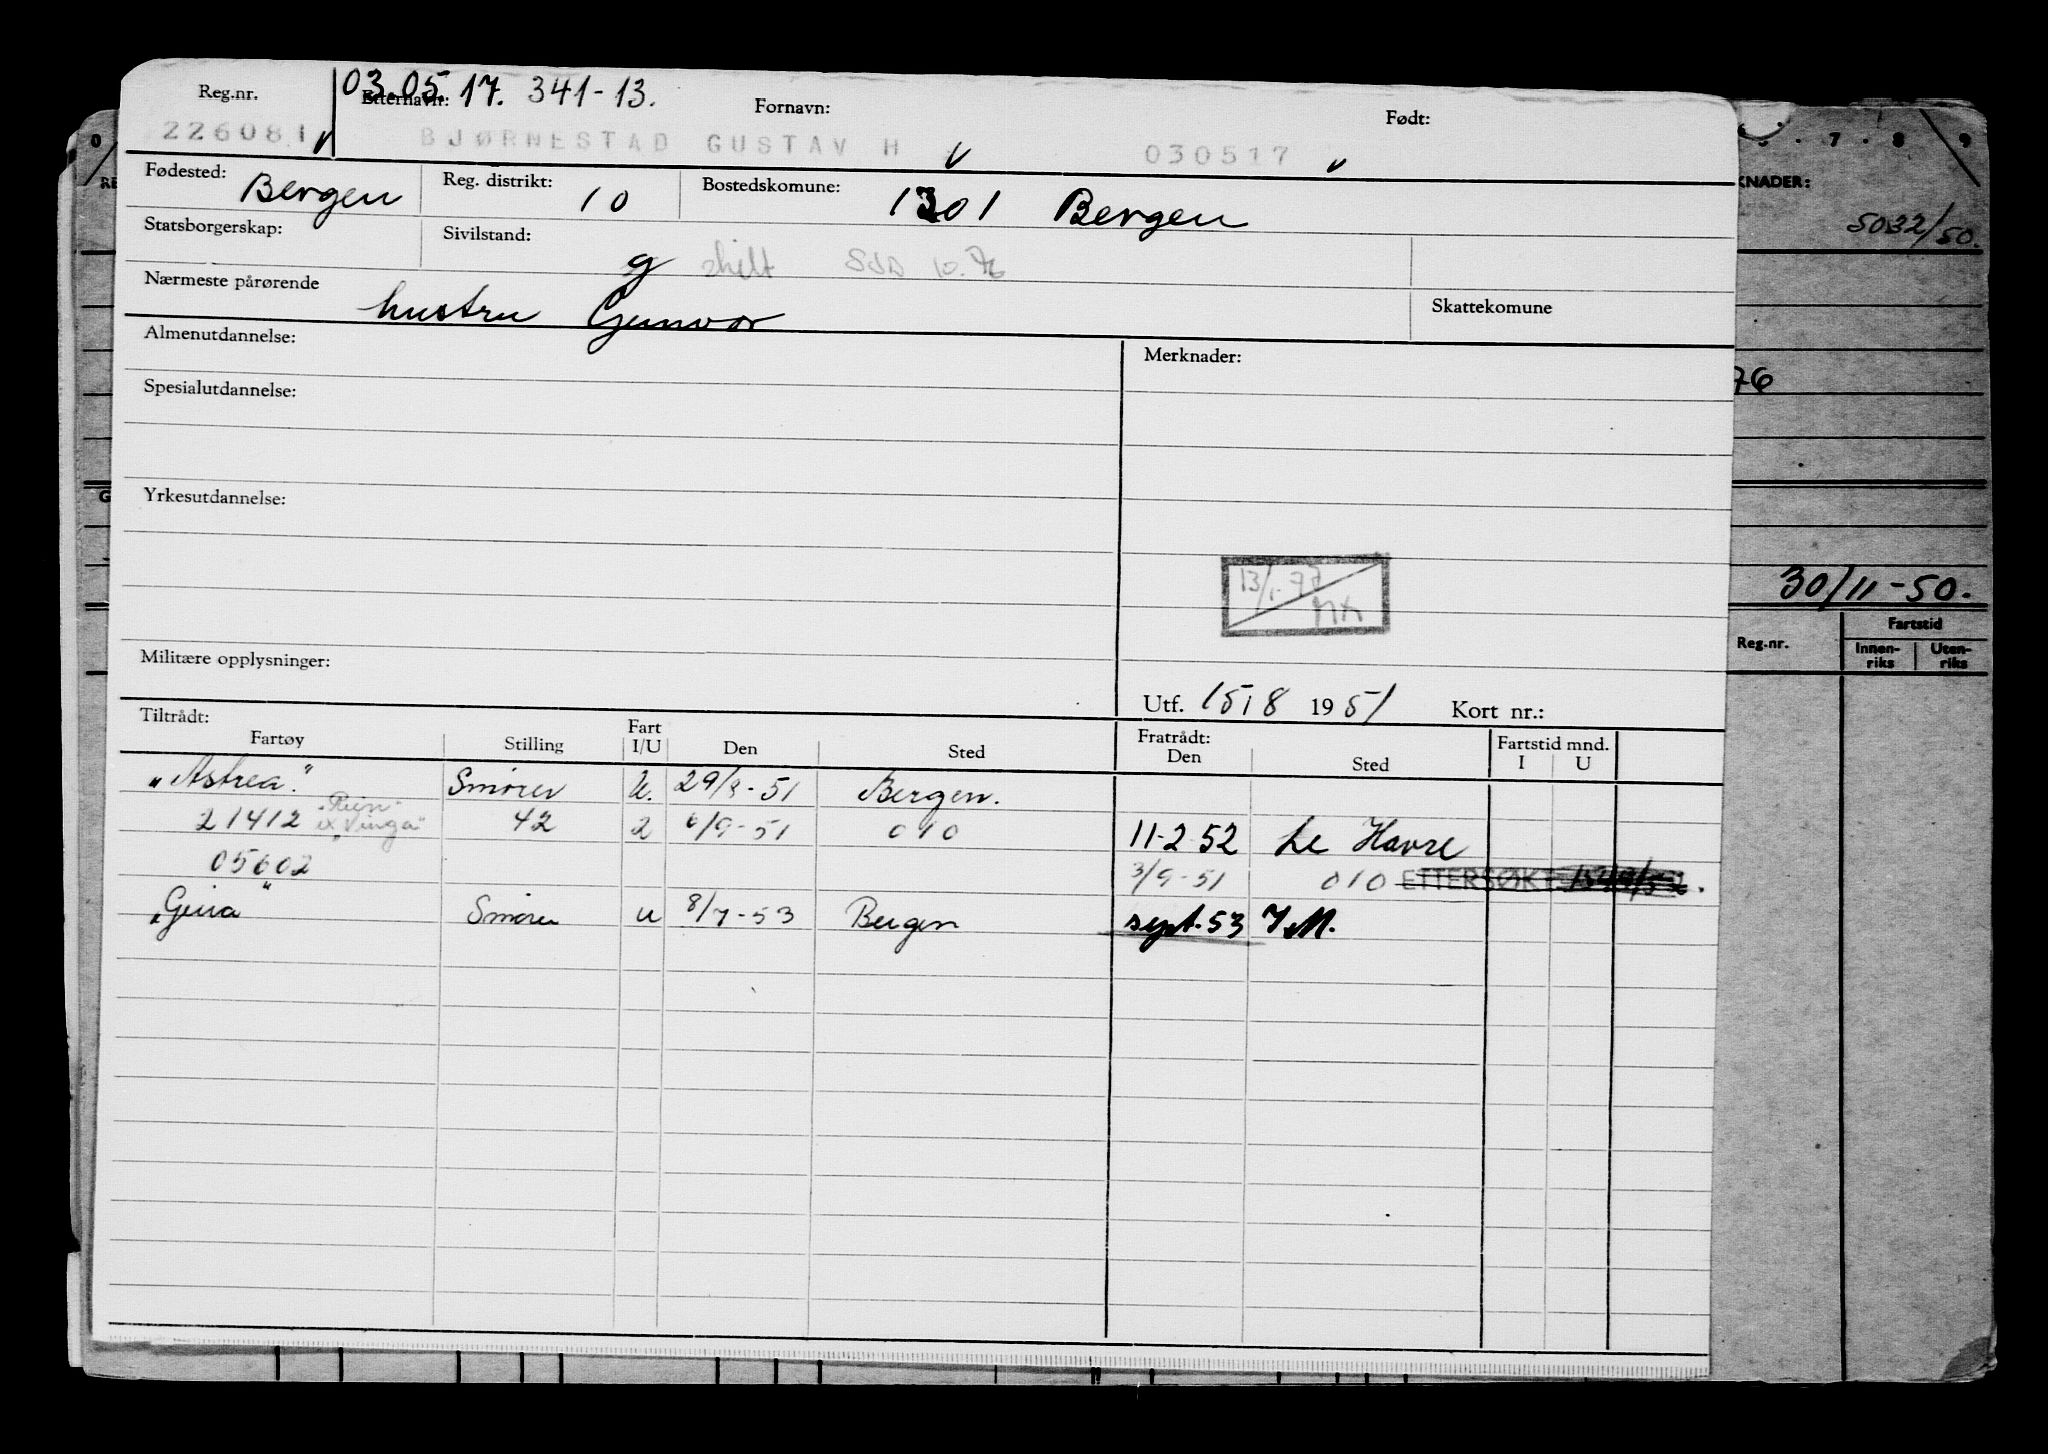 03.05.17. 341-13.
Reg.nr. Etternavn: Fornavn: Født:
226081 BJØRNESTAD GUSTAV H 030517
Fødested: Bergen Reg. distrikt: 10 Bostedskomune: 1301 Bergen
Statsborgerskap: Sivilstand: g skilt SJD 10.76
Nærmeste pårørende hustru Gunvor Skattekomune
Almenutdannelse: Merknader:
Spesialutdannelse:
Yrkesutdannelse:
13/1-77
Militære opplysninger:
Utf. 15/8 1951 Kort nr.:
Tiltrådt: Fratrådt:
Fartøy Stilling Fart I/U Den Sted Den Sted Fartstid mnd. I U
"Astrea" Smører U. 29/8-51 Bergen.
21412 "Rein" ex "Vinga" 42 2 6/9-51 010 11-2-52 Le Havre
05602 3/9-51 010 ETTERSØKT
"Gina" Smører U 8/7-53 Bergen sept. 53 I.M.
0 7 8 9
KNADER:
5032/50.
76
30/11-50.
Reg.nr. Fartstid
Innen-riks Uten-riks